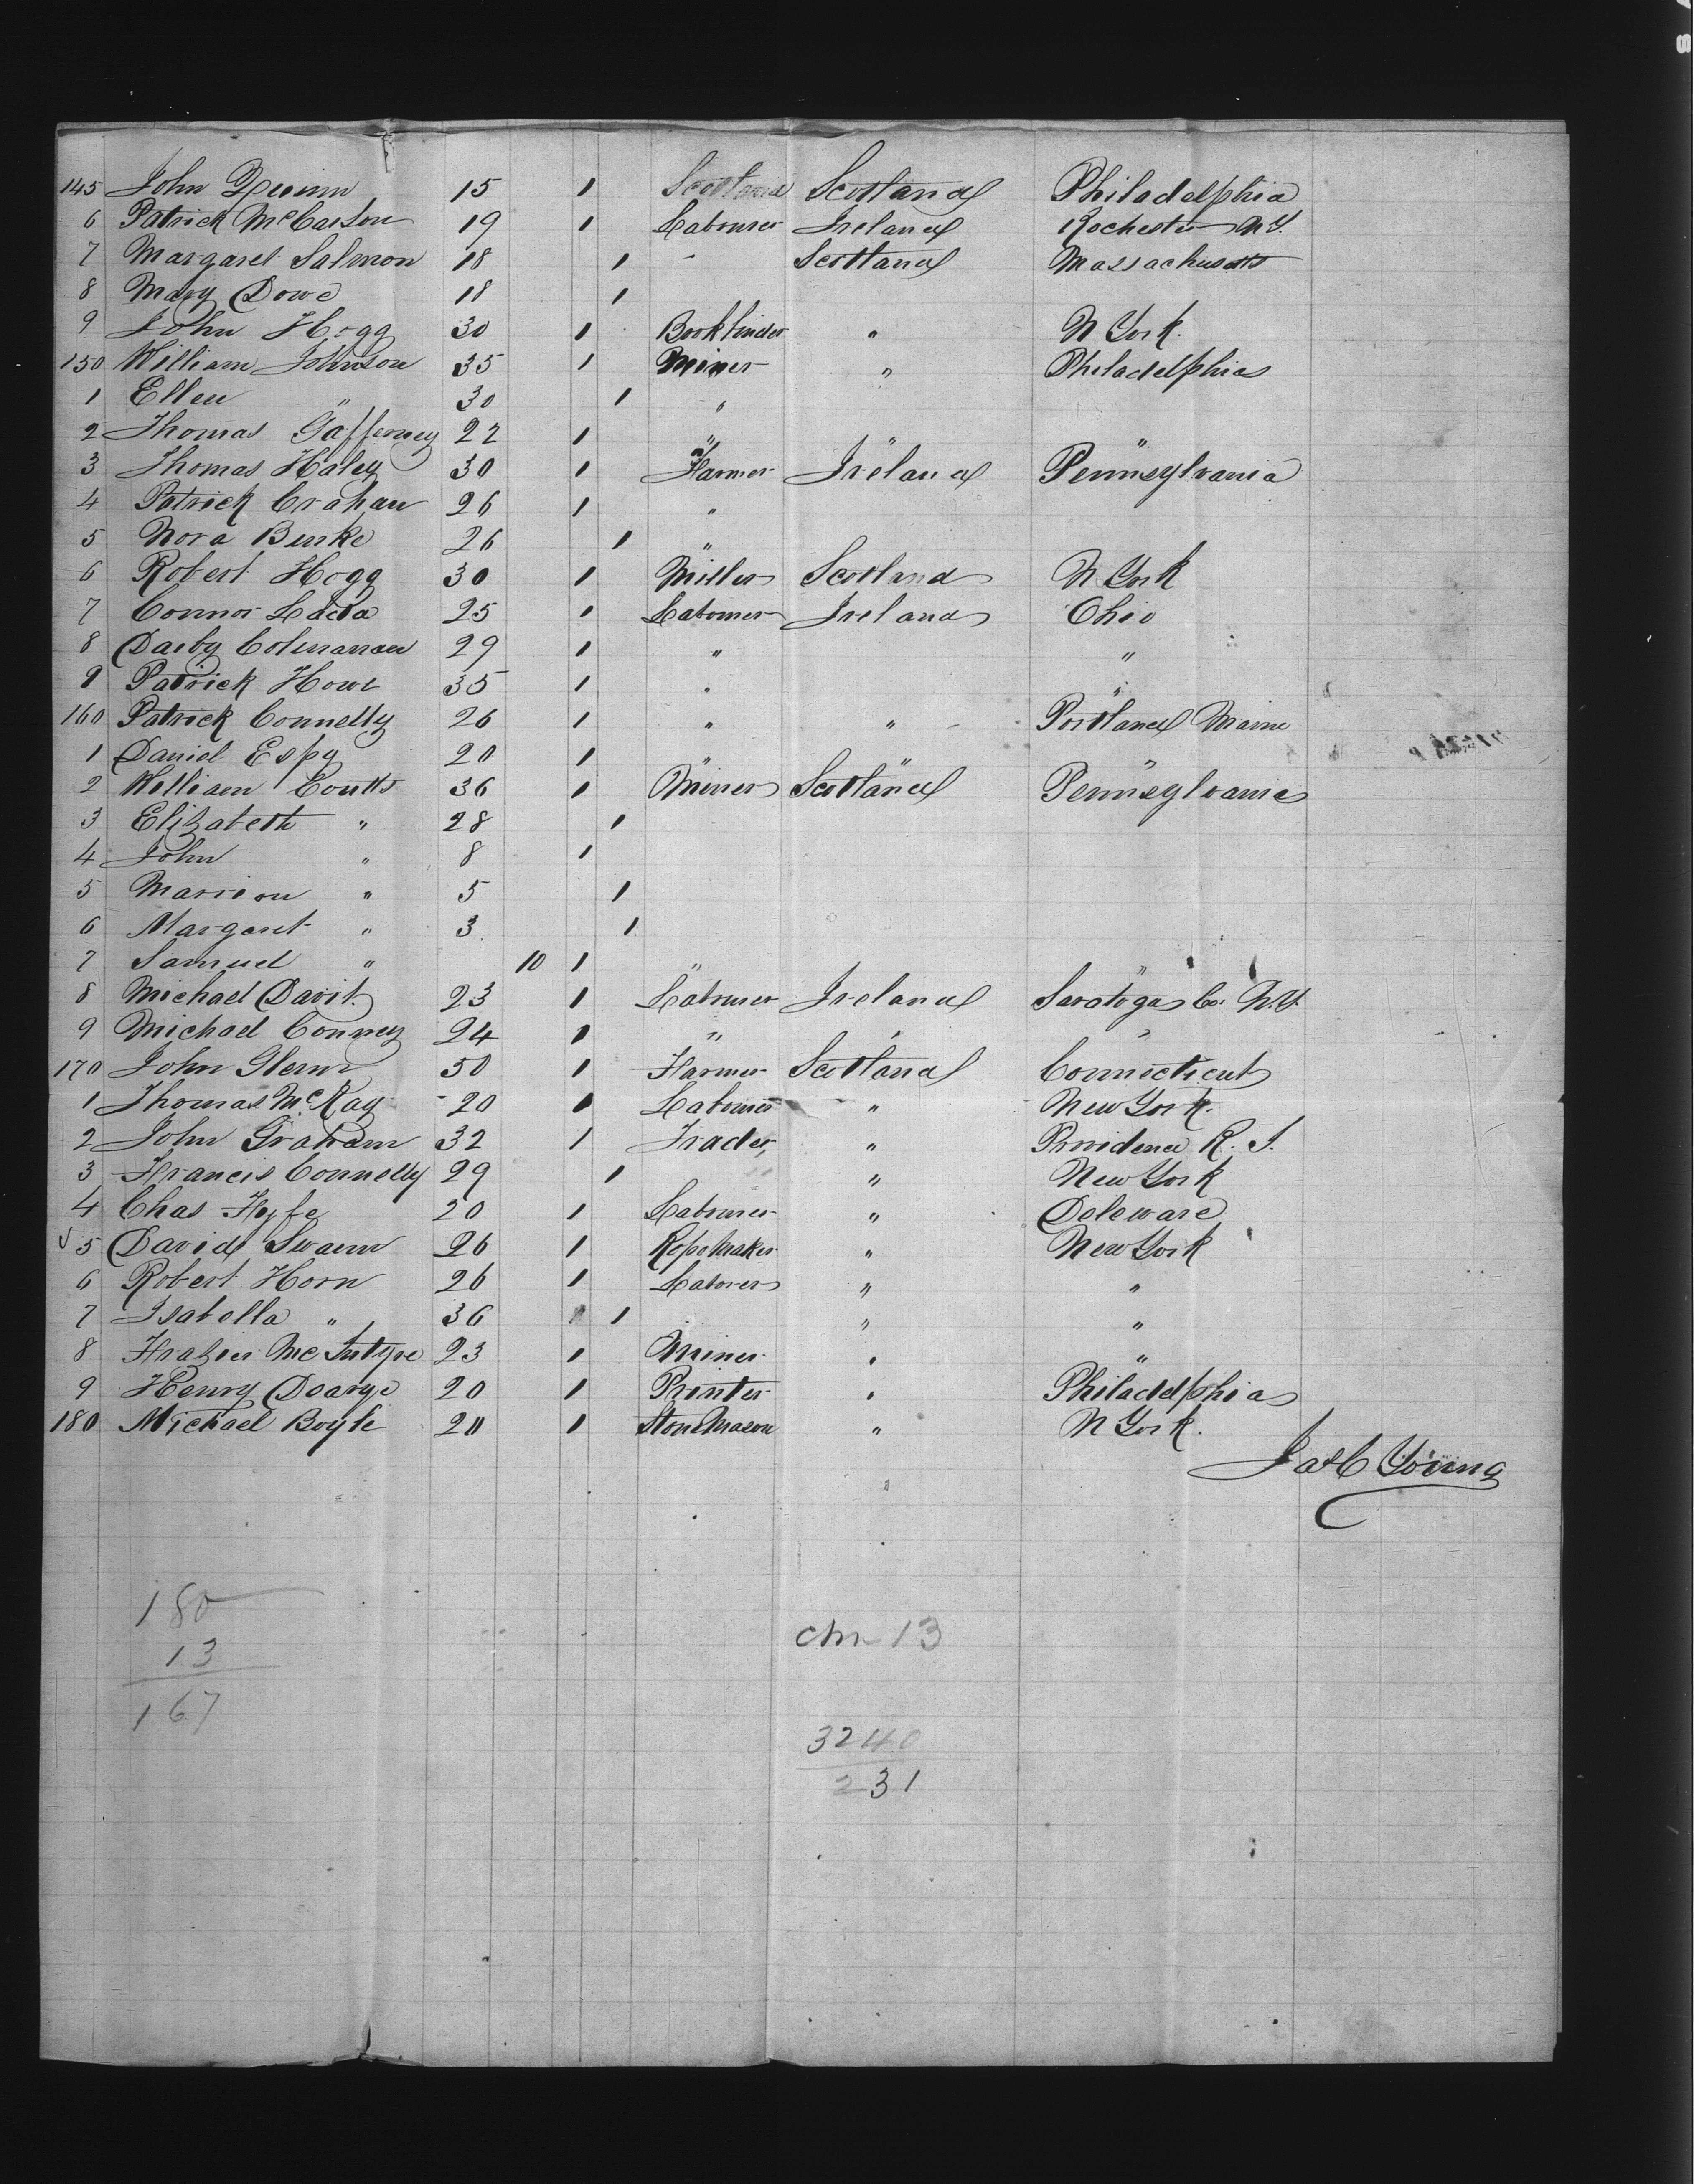 145 John Quinn 15 1 Scotland Scotland Philadelphia
6 Patrick McCarson 19 1 Labourer Ireland Rochester N.Y.
7 Margaret Salmon 18 1 Scotland Massachusetts
8 Mary Dowe 18 1
9 John Hogg 30 1 Bookbinder " N York.
150 William Johnson 35 1 Miner " Philadelphia
1 Ellen " 30 1 "
2 Thomas Gafferney 22 1 " " "
3 Thomas Haley 30 1 Farmer Ireland Pennsylvania
4 Patrick Crahan 26 1 "
5 Nora Burke 26 1 "
6 Robert Hogg 30 1 Miller Scotland N York
7 Connor 25 1 Labourer Ireland Ohio
8 Darby Colmanan 29 1 " "
9 Patrick Howe 35 1 " "
160 Patrick Connelly 26 1 " " Portland Maine
1 Daniel Espy 20 1 " " "
2 William Coutts 36 1 Miner Scotland Pennsylvania
3 Elizabeth " 28 1
4 John " 8 1
5 Marion " 5 1
6 Margaret " 3 1
7 Samuel " 10 1
8 Michael Davit 23 1 Labourer Ireland Saratoga Co. N.Y.
9 Michael Conney 24 1 " " "
170 John Glenn 50 1 Farmer Scotland Connecticut
1 Thomas McKay 20 1 Labourer " New York.
2 John Graham 32 1 Trader " Providence R. I.
3 Francis Connelly 29 1 " New York
4 Chas Fyfe 20 1 Labourer " Deleware
5 David Swann 26 1 Ropemaker " New York
6 Robert Horn 26 1 Laborer " "
7 Isabella " 36 1 " "
8 Frazier McIntyre 23 1 Miner " "
9 Henry Doarge 20 1 Printer " Philadelphia
180 Michael Boyle 20 1 Stone Mason " N York.
Jas C Young
"
180
13
167
chn 13
3240
231